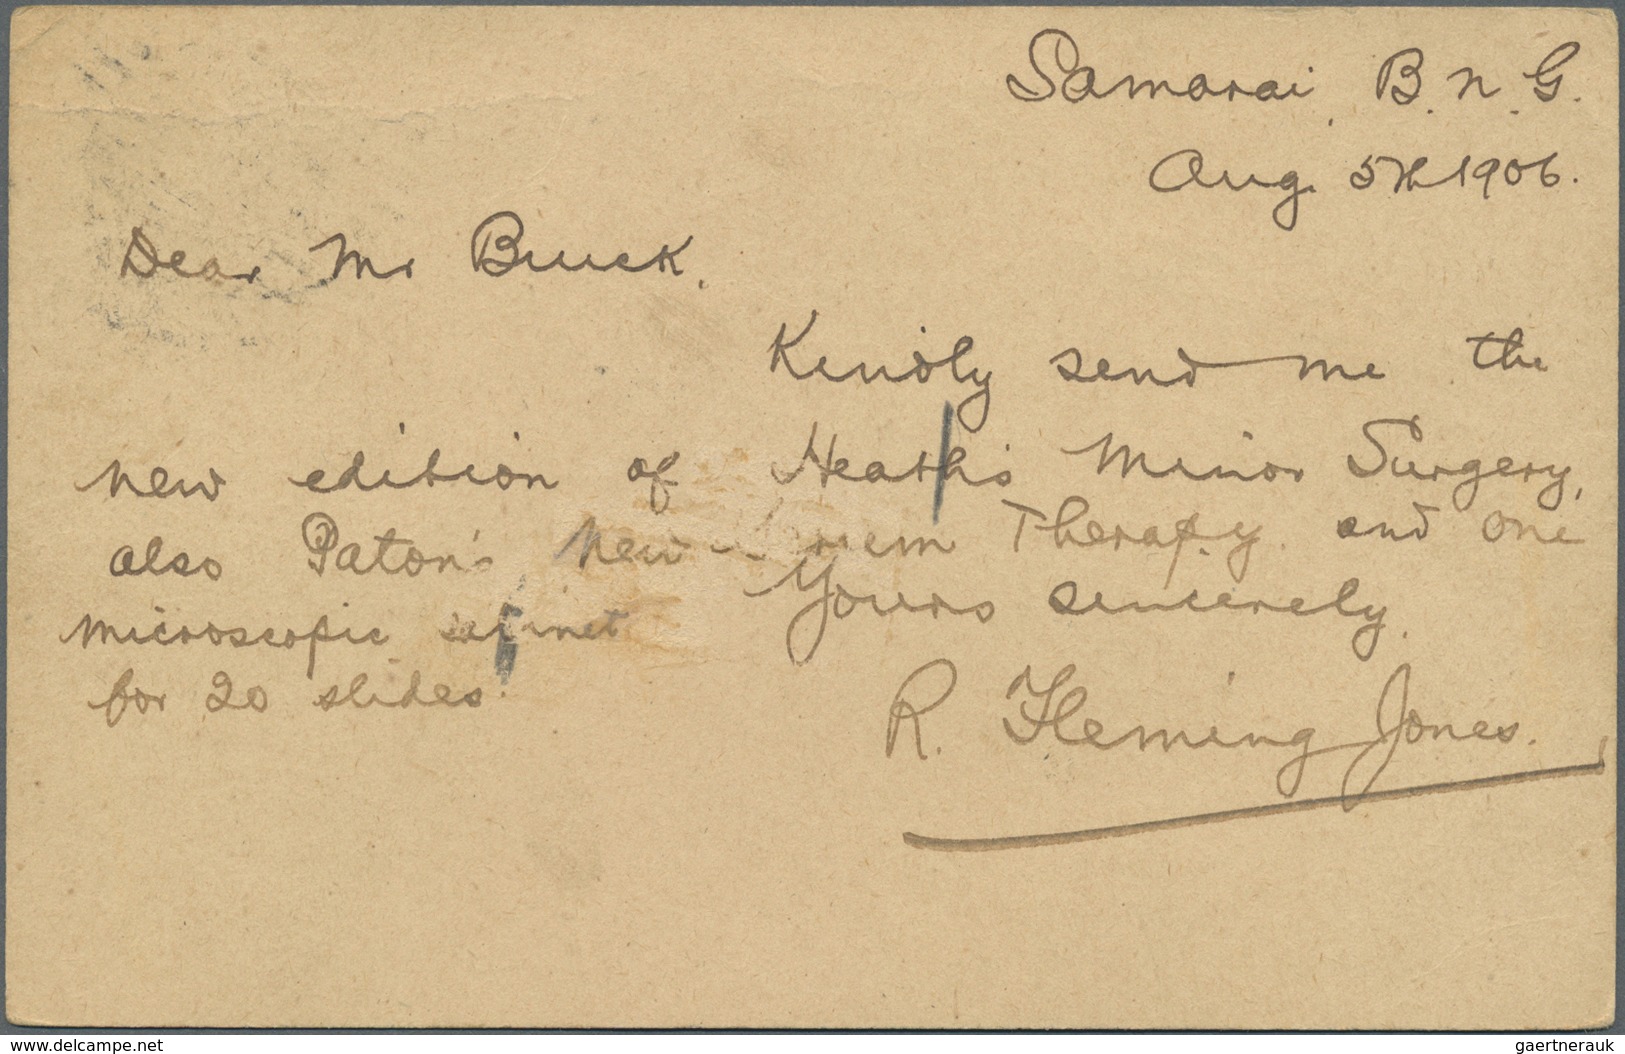 Samarai, B.N.G.
Aug. 5th 1906.
Dear Mr
Kindly send me the
new edition of Heath's Minor Surgery,
also Paton's New Therapy and one
microscopic cabinet
for 20 slides.
Yours sincerely,
R. Fleming Jones.
www.delcampe.net
gaertnerauk